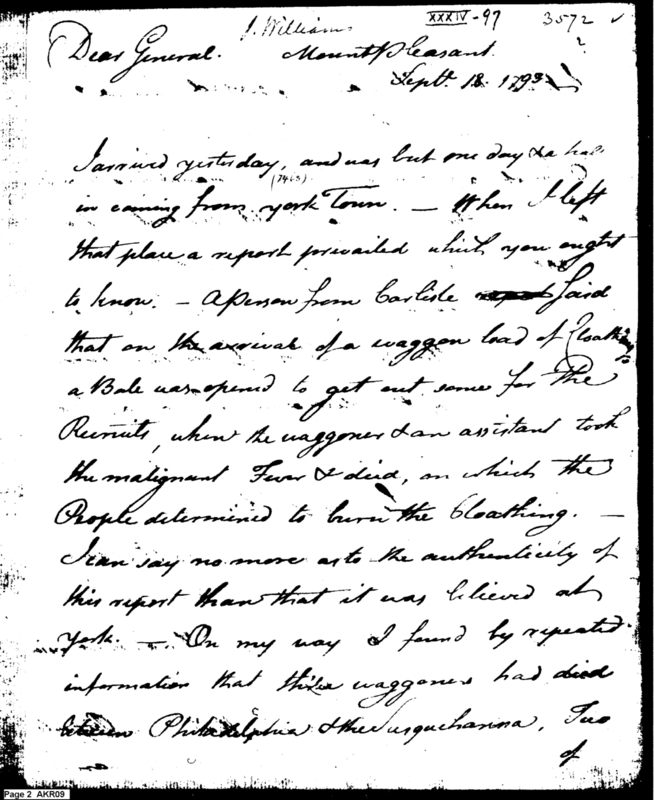 J. Williams
XXXIV-97
3572 ✓
?
Dear General.
Mount Pleasant.
Septr. 18. 1793
I arrived yesterday, and was but one day & a half
(7463)
in coming from York Town. — When I left
that place a report prevailed which you ought
to know. — A Person from Carlisle said
that on the arrival of a waggon load of Cloathing
a Bale was opened to get out some for the
Recruits, when the waggoner & an assistant took
the malignant Fever & died, on which the
People determined to burn the Cloathing. —
I can say no more as to the authenticity of
this report than that it was believed at
York. — On my way I found by repeated
information that three waggoners had died
between Philadelphia & the Susquehanna, Two
of
Page 2 AKR09